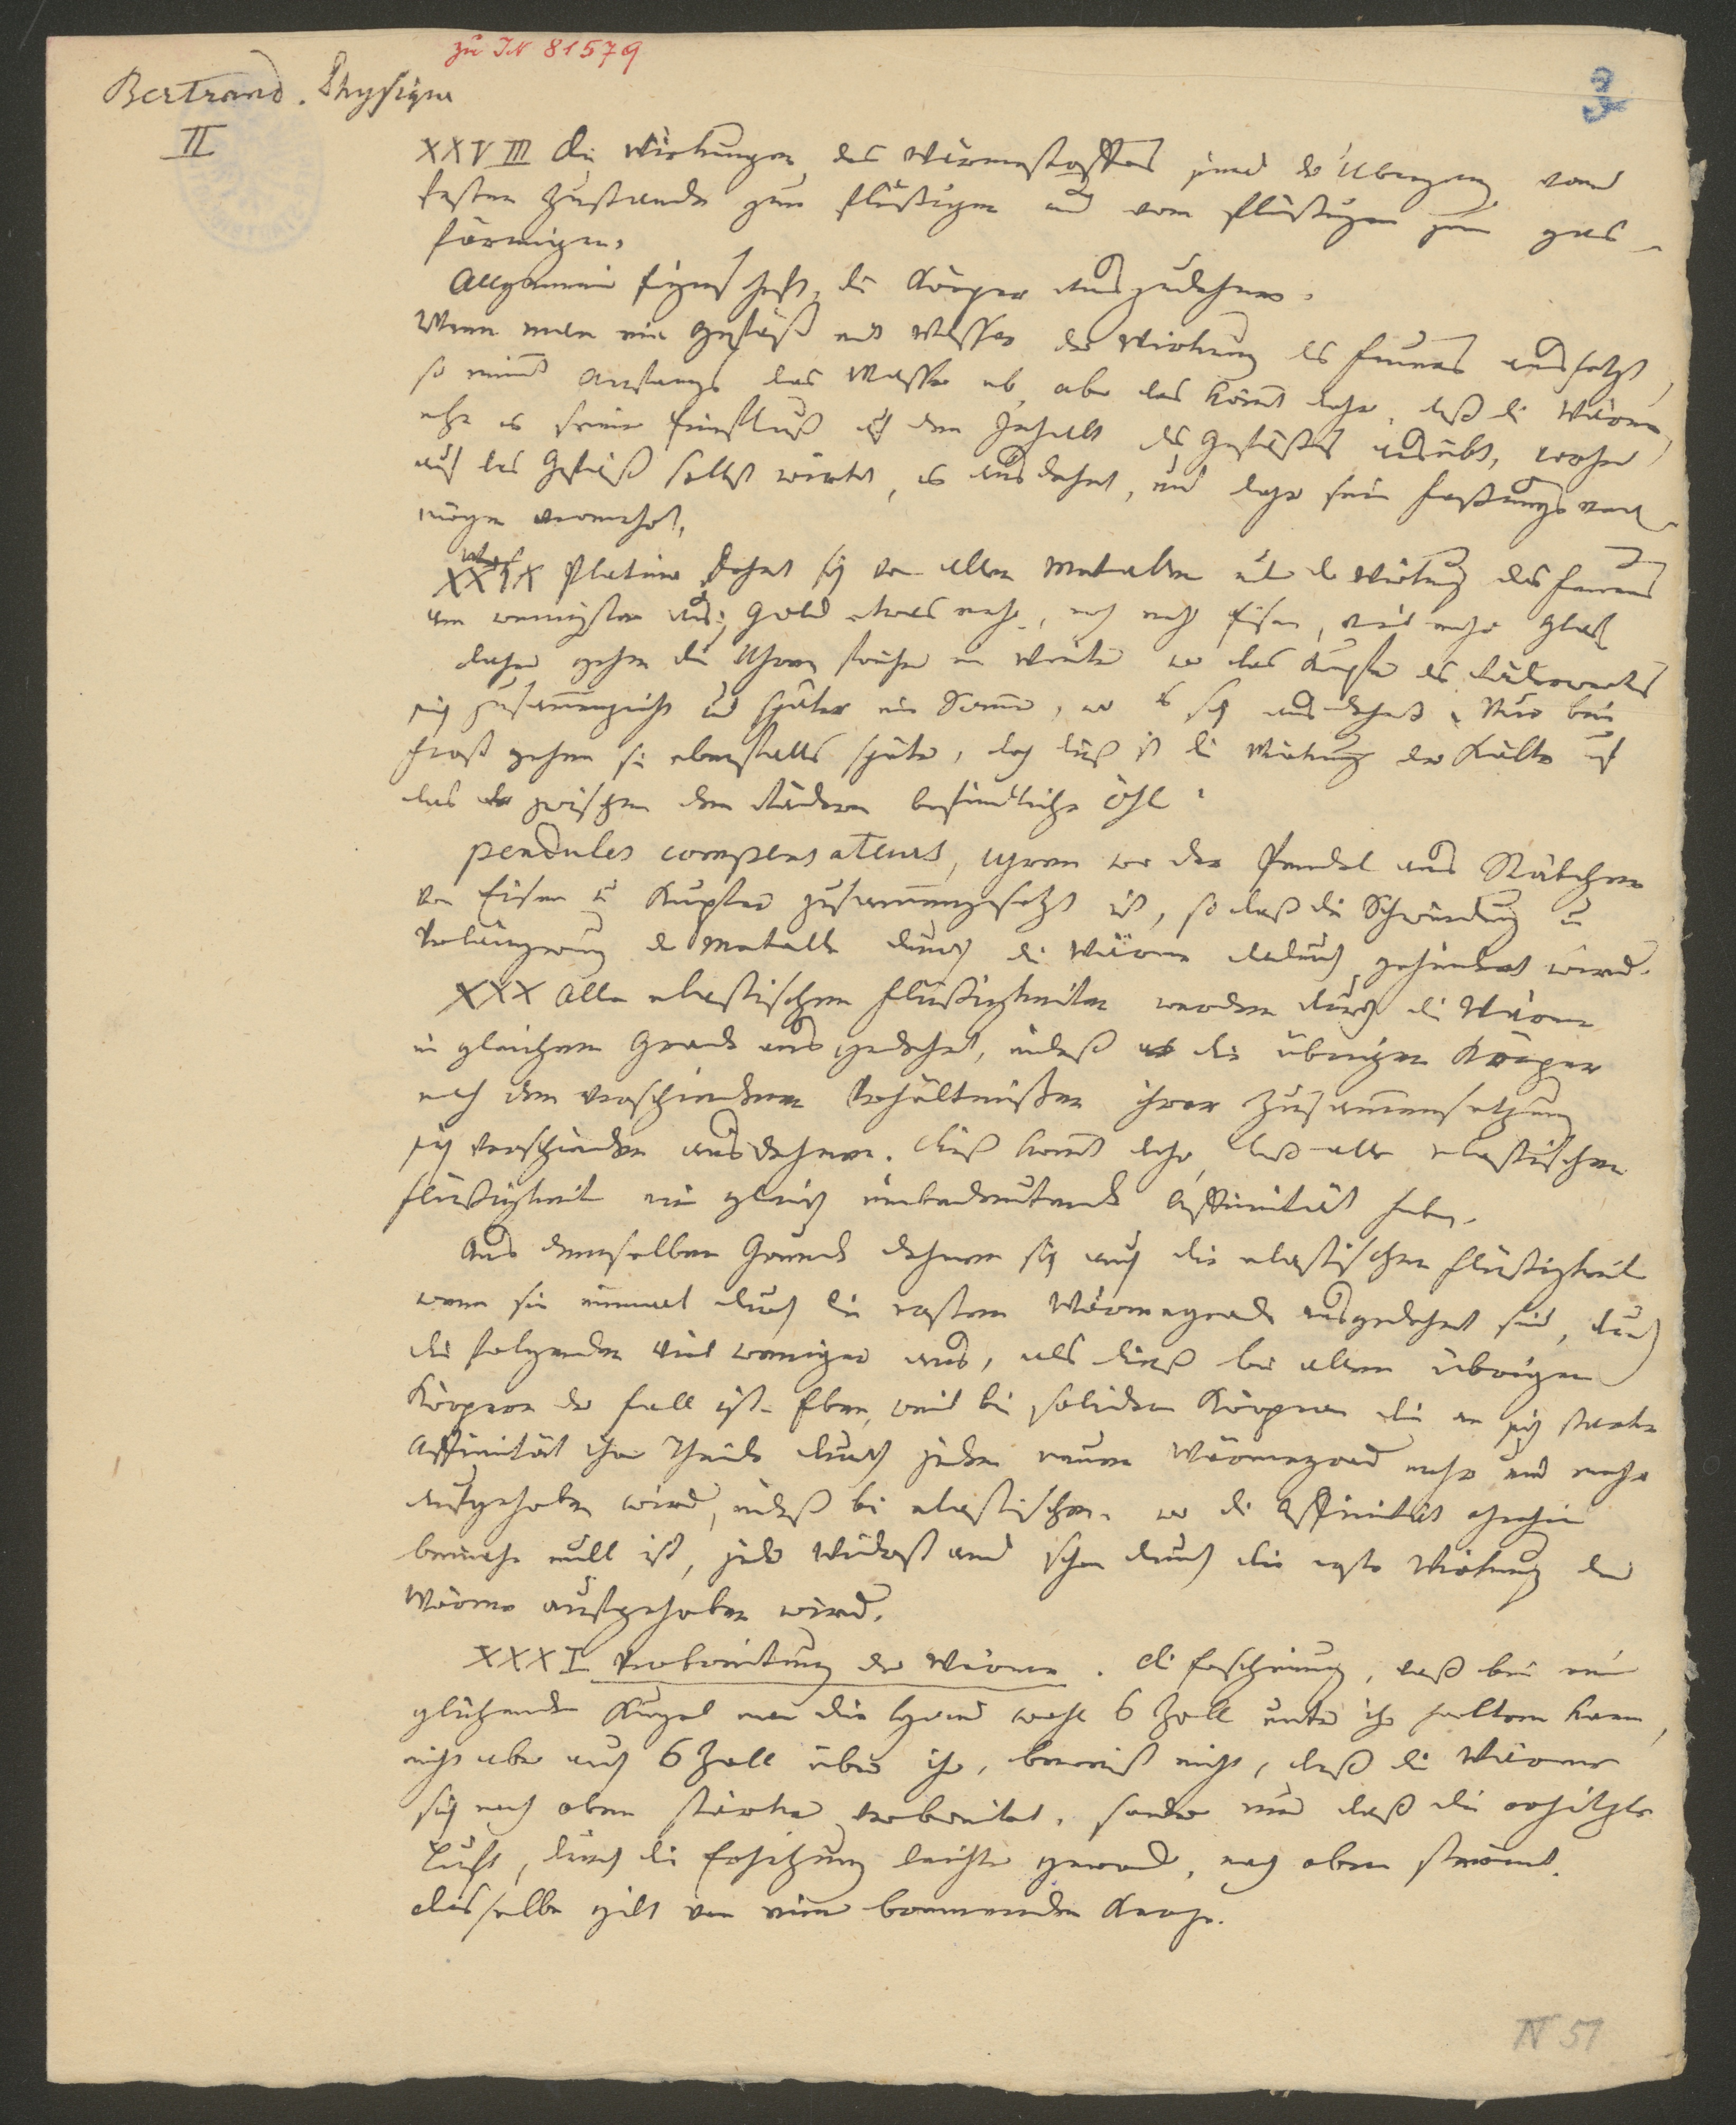 zu IN 81579
3
Bertrand. Physique
II
XXVIII Die Wirkungen des Wärmestoffes sind der Übergang vom
festen Zustande zum flüßigen und vom flüßigen zum gas-
förmigen.
Allgemeine Eigenschaft, die Körper auszudehnen.
Wenn man ein Gefäß mit Wasser der Wirkung des Feuers aussetzt,
so nimmt anfangs das Wasser ab, aber das kömt daher, daß die Wärme,
ehe es seinen Einfluß auf den Inhalt des Gefäßes ausübt, vorher
auf das Gefäß selbst wirkt, es ausdehnt, und daher sein Fassungsver-
mögen vermehrt.
XXIX Platina dehnt sich von allen Metallen unter der Wirkung des Feuers
am wenigsten aus; Gold etwas mehr, noch mehr Eisen, viel mehr Glas
daher gehen die Uhren früher im Winter wo das Kupfer des Räderwerkes
sich zusammenzieht und später im Sommer, wo es sich ausdehnt. Nur bei
Frost gehen sie ebenfalls später, doch dieß ist die Wirkung der Kälte auf
das zwischen den Rädern befindliche Öhl.
pendules compensateurs, Uhren wo der Pendel aus Stäbchen
von Eisen u Kupfer zusammengesetzt ist, so daß die Schwindung u
Verlängerung der Metalle durch die Wärme dadurch gehindert wird.
XXX Alle elastischen Flüßigkeiten werden durch die Wärme
in gleichem Grade ausgedehnt, indeß die übrigen Körper
nach den verschiedenen Verhältnißen ihrer Zusammensetzung
sich verschieden ausdehnen. Dieß komt daher, daß alle elastischen
Flüßigkeiten eine gleich unbedeutende Affinität haben.
Aus demselben Grunde dehnen sich auch die elastischen Flüßigkeiten
wenn sie einmal durch die ersten Wärmegrade ausgedehnt sind, durch
die folgenden viel weniger aus, als dieß bei allen übrigen
Körpern der Fall ist. Eben, weil bei soliden Körpern die an sich starke
Affinität ihrer Theile durch jeden neuen Wärmegrad mehr und mehr
aufgehoben wird, indeß bei elastischen, wo die Affinität ohnehin
beinahe null ist, jeder Widerstand schon durch die erste Wirkung der
Wärme aufgehoben wird.
XXXI Verbreitung der Wärme. Die Erscheinung, daß bei einer
glühenden Kugel man die Hand wohl 6 Zoll unter ihr halten kann,
nicht aber auch 6 Zoll über ihr, beweist nicht, daß die Wärme
sich nach oben stärker verbreitet, sondern nur daß die erhitzte
Luft, durch die Erhitzung leichter geworden, nach oben strömt.
dasselbe gilt von einer brennenden Kerze.
N 51